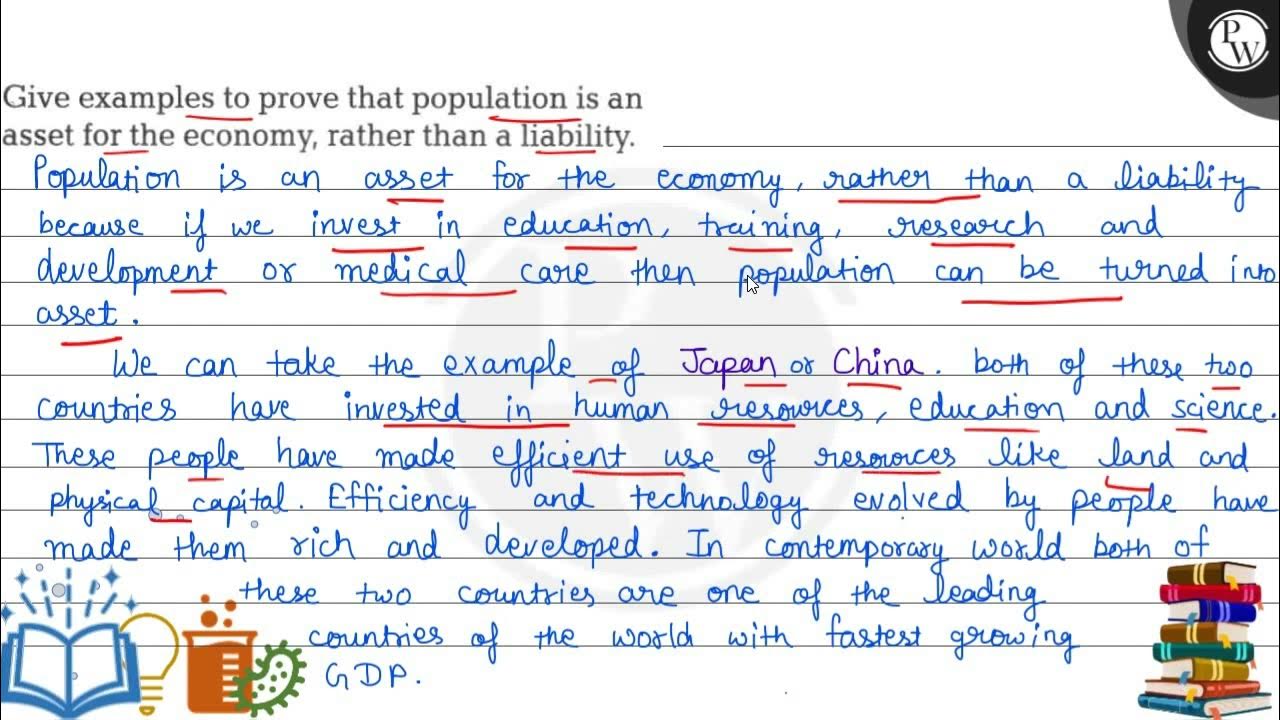 PW
Give examples to prove that population is an
asset for the economy, rather than a liability.
Population is an asset for the economy, rather than a liability
because if we invest in education, training, research and
development or medical care then population can be turned into
asset.
We can take the example of Japan or China. both of these two
countries have invested in human resources, education and science.
These people have made efficient use of resources like land and
physical capital. Efficiency and technology evolved by people have
made them rich and developed. In contemporary world both of
these two countries are one of the leading
countries of the world with fastest growing
GDP.